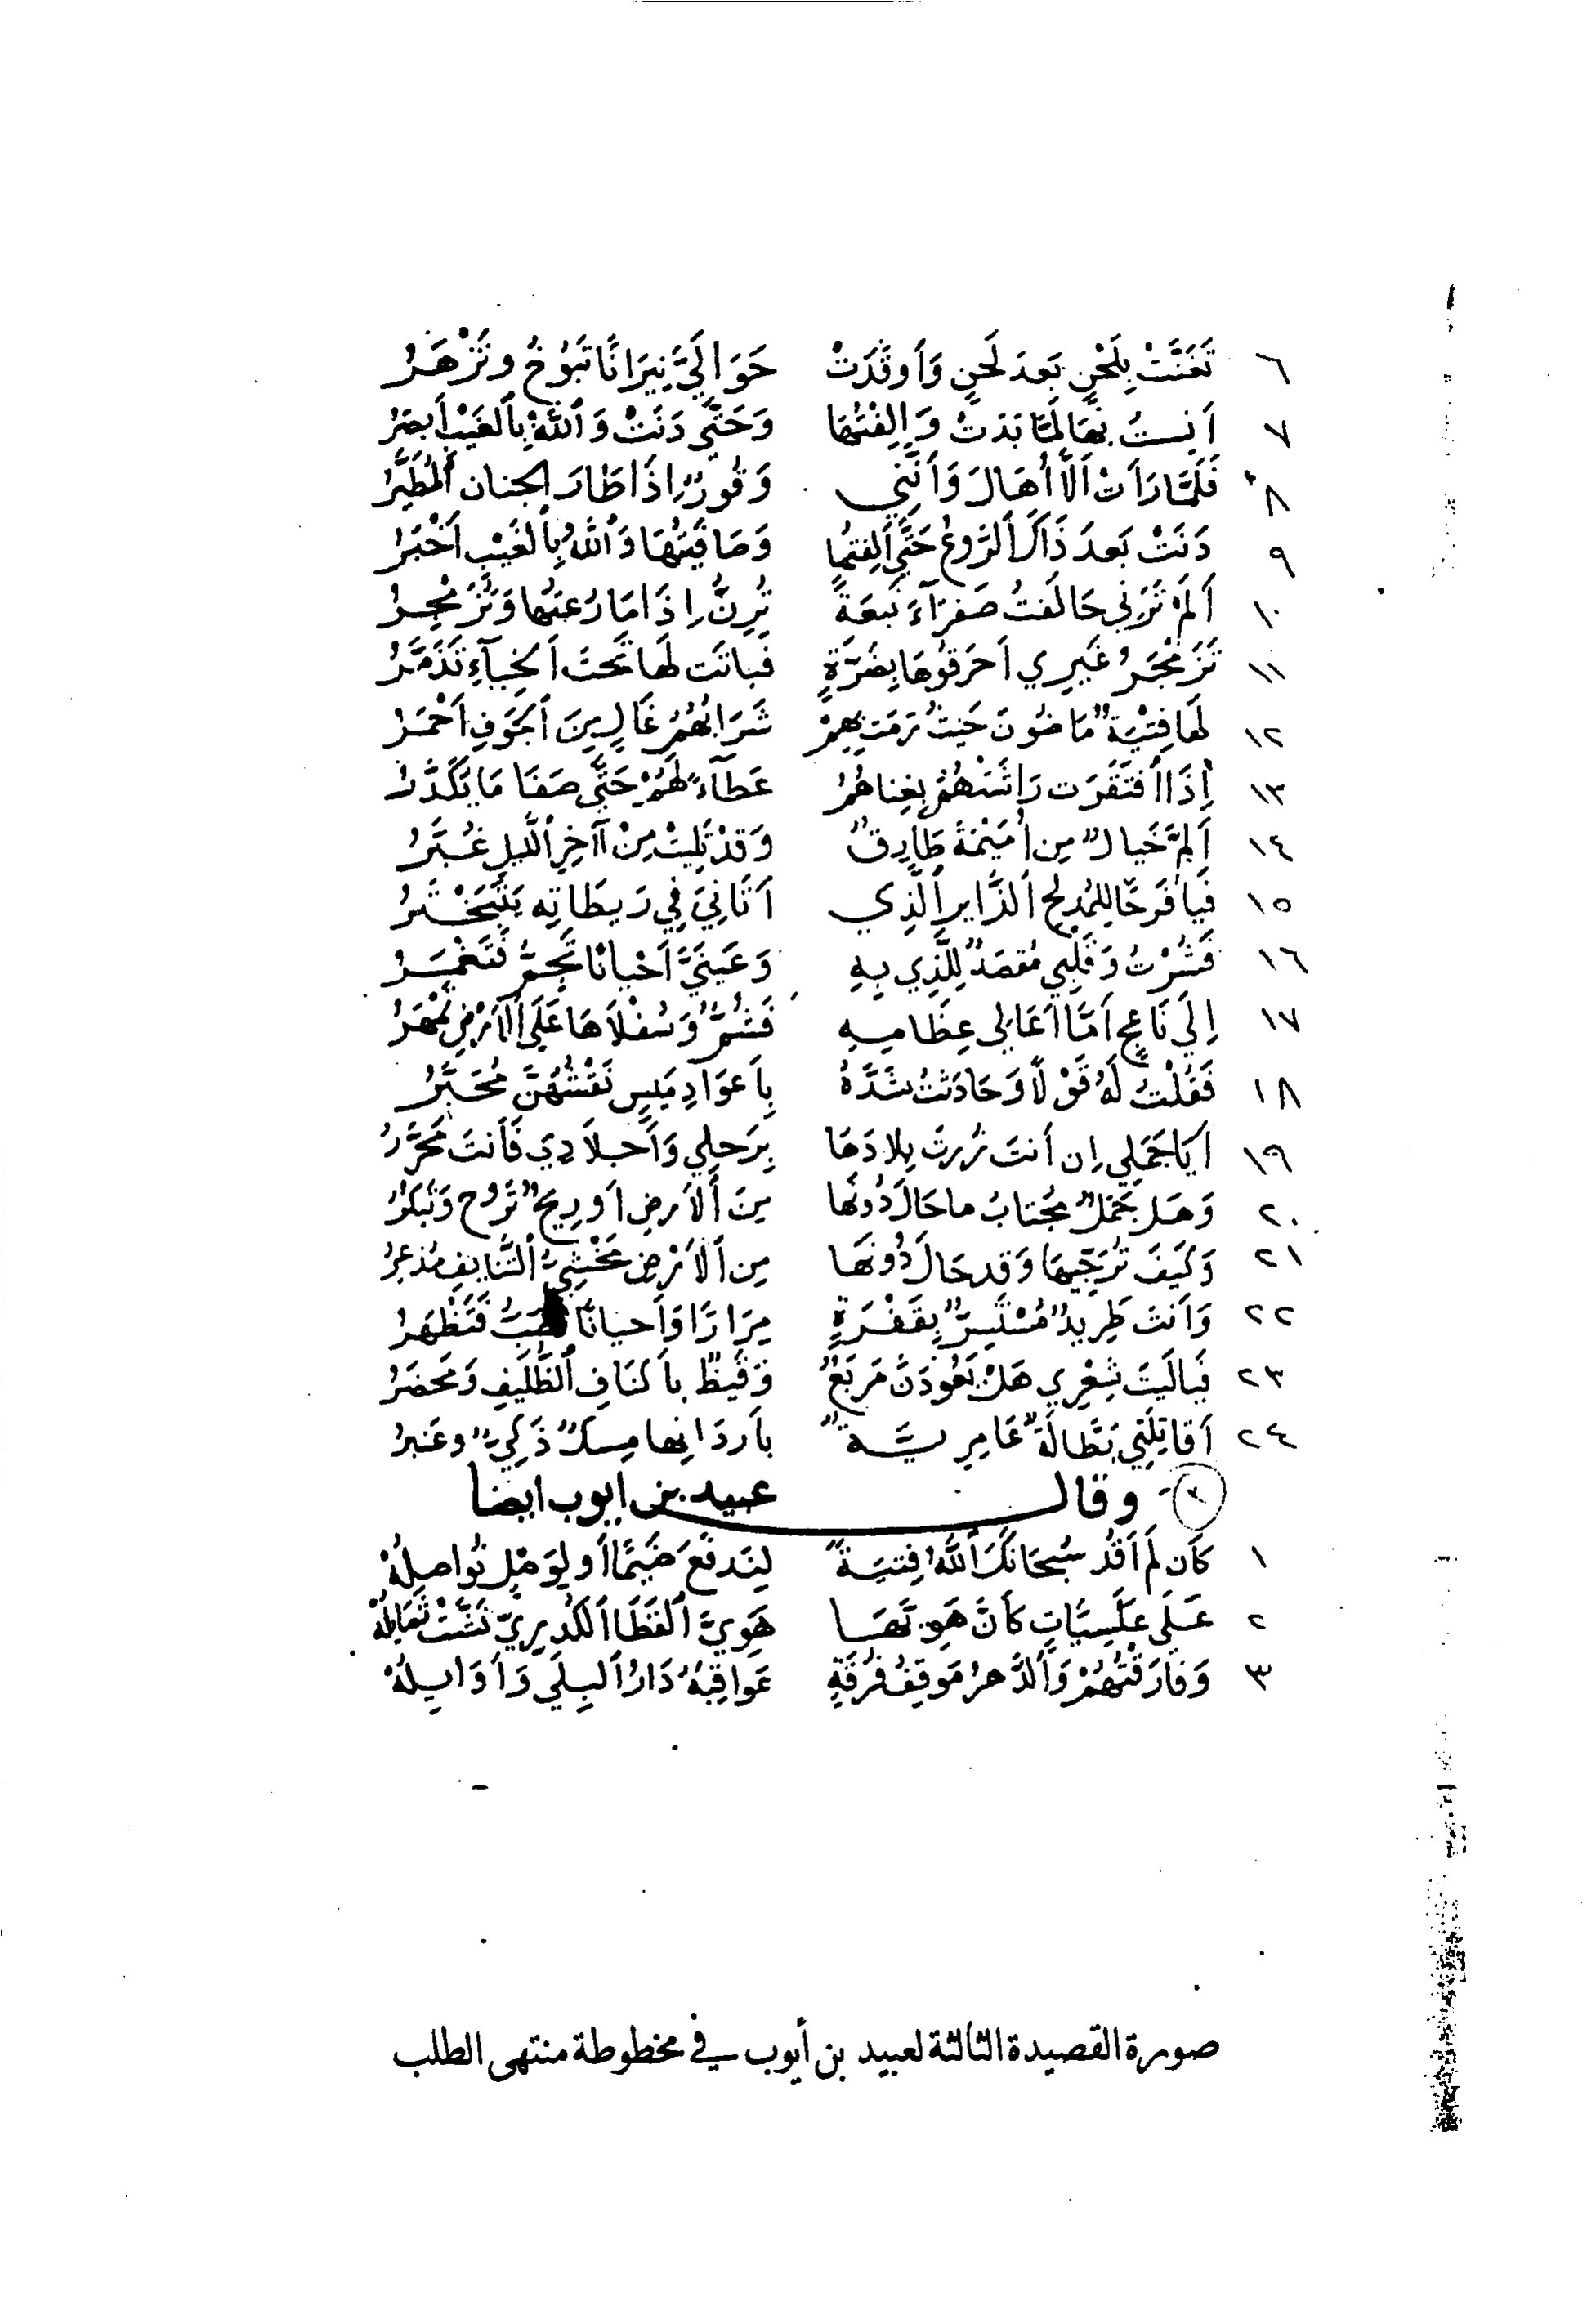 ٦ تَغَنَّتْ بِلَحْنٍ بَعدَ لَحنٍ وَأَوقَدَتْ حَوَالَيَّ نِيرَانًا تَبُوخُ وتَزْهَرُ
٧ أَنِستُ بِهَا لَمَّا بَدَتْ وَأَلِفْتُهَا وَحَتَّى دَنَتْ وَاللَّهُ بِالغَيْبِ أَبصَرُ
٨ فَلَمَّا رَأَتْ أَلَّا أُهَالَ وَأَنَّنِي وَقُورٌ إِذَا طَارَ الجنان المُطَيَّرُ
٩ دَنَتْ بَعدَ ذَاكَ الرَّوعِ حَتَّى أَلِفتُهَا وَصَافَيتُهَا وَاللَّهُ بِالغَيْبِ أَخْبَرُ
١٠ أَلَمْ تَرَنِي حَالَفتُ صَفرَآءَ نَبعَةً تُرِنُّ إِذَا مَا رُعتُهَا وَتُزَمْجِرُ
١١ تَزَمْجَرُ غَيرِي أَحرَقُوهَا بِضَرَّةٍ فَبَاتَت لَهَا تَحتَ الخِبَآءِ تَذَمَّرُ
١٢ لَهَا فِتْيَةٌ مَاضُونَ حَيثُ رَمَت بِهِمْ شَرَابُهُمُ غَالٍ مِنَ الجَوفِ أَحْمَرُ
١٣ إِذَا افتَقَرَت رَاشَتْهُمُ بِغِنَاهُمُ عَطَآءً لَهُمْ حَتَّى صَفَا مَا يُكَدَّرُ
١٤ أَلَمَّ خَيَالٌ مِن أُمَيْمَةَ طَارِقٌ وَقَدْ تَلِيَتْ مِنْ آخِرِ اللَّيلِ غُبَّرُ
١٥ فَيَا فَرَحًا لِلمُدلِجِ الزَّايرِ الَّذِي أَتَانِيَ فِي رَيطَاتِه يَتَبَخْتَرُ
١٦ فَثُرْتُ وَقَلبِي مُقصَدٌ لِلَّذِي بِهِ وَعَينَيَّ أَحْيانًا تَجِمُّ فَتَغمُرُ
١٧ إِلَى نَاعِجٍ أَمَّا أَعَالِي عِظَامِهِ فَشُمٌّ وَسُفْلَاهَا عَلَى الأَرْضِ تَمْهَرُ
١٨ فَقُلْتُ لَهُ قَوْلًا وَحَادَثتُ شَدَّهُ بِأَعوَادِ مَيسٍ نَقْشُهُنَّ مُحَبَّرُ
١٩ أَيَا جَمَلِي إِن أَنتَ زُرتَ بِلادَهَا بِرَحلِي وَأَجلَادِي فَأَنتَ مُحَرَّرُ
٢٠ وَهَل جَمَلٌ مُجتابُ ماحَالَ دُونَهَا مِنَ الأَرضِ أَو رِيحٌ تَرُوح وَتَبكُرُ
٢١ وَكَيفَ تُرَجِّيهَا وَقَد حَالَ دُونَهَا مِن الأَرْضِ مَخْشِيُّ التَّنَايفِ مُذعِرُ
٢٢ وَأَنتَ طَرِيدٌ مُسْتَسِرٌّ بِقَفْرَةٍ مِرَارًا وَأَحيانًا فَتَظْهَرُ
٢٣ فَيَالَيتَ شِعْرِي هَلْ يَعُودَنَّ مَربَعٌ وَقَيظٌ بِأَكنَافِ الظَّلِيفِ وَمَحضَرُ
٢٤ أَقَاتِلَتِي بَطَّالَةٌ عَامِرِيَّةٌ بأَردَانِها مِسكٌ ذَكِيٌّ وعَنبَرُ
٣ - وقال عبيد بن ايوب ايضا
١ كَأَن لَم أَقُد سُبحَانَكَ اللَّهُ فِتيَةً لِنَدفَعَ ضَيْمًا أَو لِوَصْلٍ نُواصِلُهْ
٢ عَلَى عَلَسِيَّاتٍ كَأَنَّ هَوِيَّهَا هَوِيَّ القَطَا الكُدرِيِّ نَشَّتْ ثَمَايِلُهْ
٣ وَفَارَقتُهُمْ وَالدَّهرُ مَوقِفُ فُرقَةٍ عَوَاقِبُهُ دَارُ البِلَى وَأَوَايِلُهْ
صورة القصيدة الثالثة لعبيد بن أيوب في مخطوطة منتهى الطلب